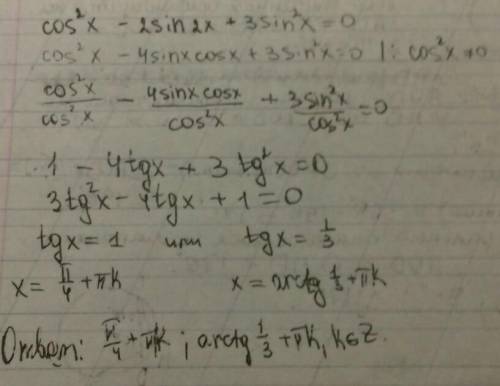 cos²x - 2sin2x + 3sin²x = 0
cos²x - 4sinxcosx + 3sin²x = 0 | : cos²x ≠ 0
cos²x/cos²x - 4sinxcosx/cos²x + 3sin²x/cos²x = 0
1 - 4tgx + 3tg²x = 0
3tg²x - 4tgx + 1 = 0
tgx = 1 или tgx = 1/3
x = π/4 + πk x = arctg 1/3 + πk
Ответ: π/4 + πk ; arctg 1/3 + πk, k∈Z.